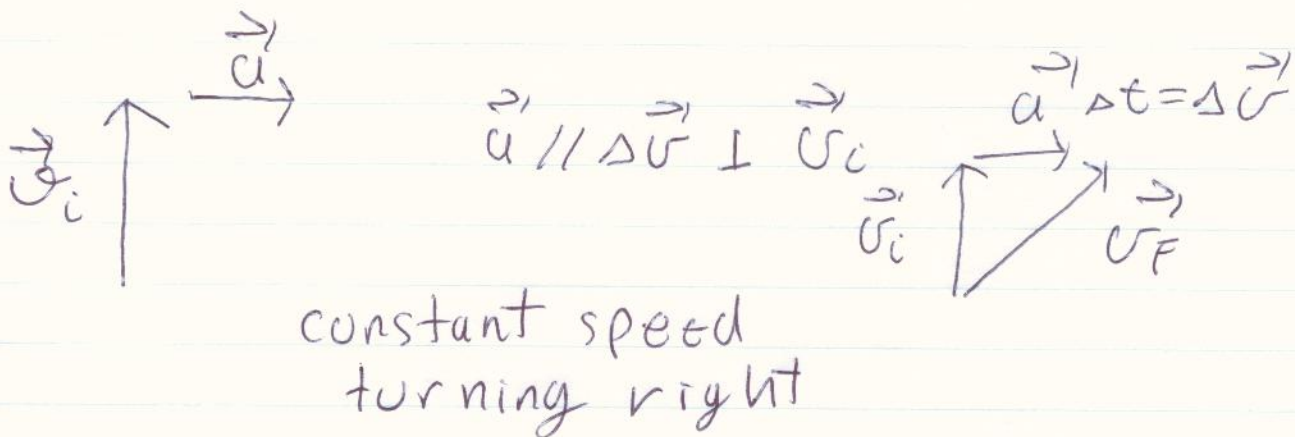 a⃗
v⃗ᵢ
a⃗ // Δv⃗ ⊥ v⃗ᵢ
a⃗ Δt = Δv⃗
v⃗ᵢ
v⃗F
constant speed
turning right